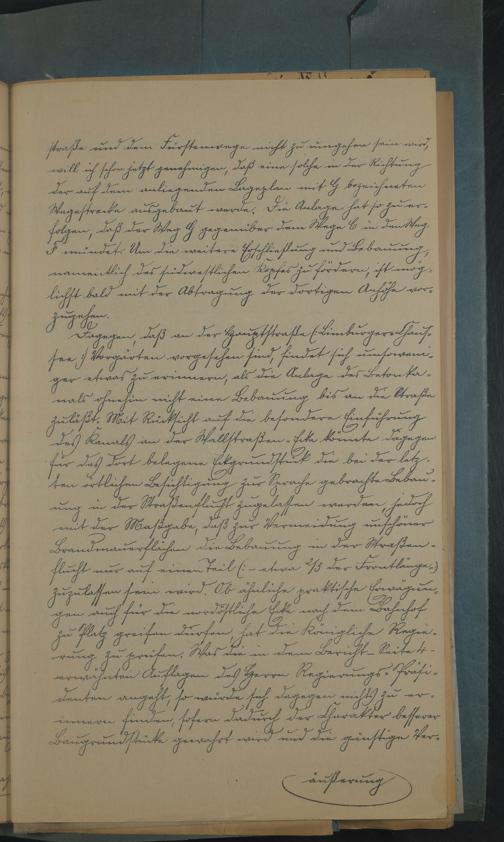 straße und dem Fürstenwege nicht zu umgehen sein wird,
will ich schon jetzt genehmigen, daß eine solche in der Richtung
der auf dem anliegenden Lageplan mit G bezeichneten
Wegestrecke ausgebaut werde. Die Anlage hat so zu er-
folgen, daß der Weg G gegenüber dem Wege C in den Weg
F mündet. Um die weitere Erschließung und Bebauung,
namentlich des südwestlichen Kopfes zu fördern, ist mög-
lichst bald mit der Abtragung der dortigen Anhöhe vor-
zugehen.
Dagegen, daß an der Hauptstraße (: Limburger Chaus-
see :) Vorgärten vorgesehen sind, findet sich umsoweni-
ger etwas zu erinnern, als die Anlage des Betonka-
nals ohnehin nicht eine Bebauung bis an die Straße
zuläßt. Mit Rücksicht auf die besondere Einführung
des Kanals an der Wallstraßen-Ecke könnte dagegen
für das dort belegene Eckgrundstück die bei der letz-
ten örtlichen Besichtigung zur Sprache gebrachte Bebau-
ung in der Straßenflucht zugelassen werden, jedoch
mit der Maßgabe, daß zur Vermeidung unschöner
Brandmauerflächen die Bebauung in der Straßen-
flucht nur auf einen Teil (: etwa 1/3 der Frontlänge :)
zuzulassen sein wird. Ob ähnliche praktische Erwägun-
gen auch für die nordöstliche Ecke nach dem Bahnhof
zu Platz greifen dürfen, hat die Königliche Regie-
rung zu prüfen. Was die in dem Bericht - Seite 4 -
erwähnten Auflagen des Herrn Regierungs-Präsi-
denten angeht, so würde sich dagegen nichts zu er-
innern finden, sofern dadurch der Charakter besserer
Baugrundstücke gewahrt wird und die günstige Ver-
äußerung